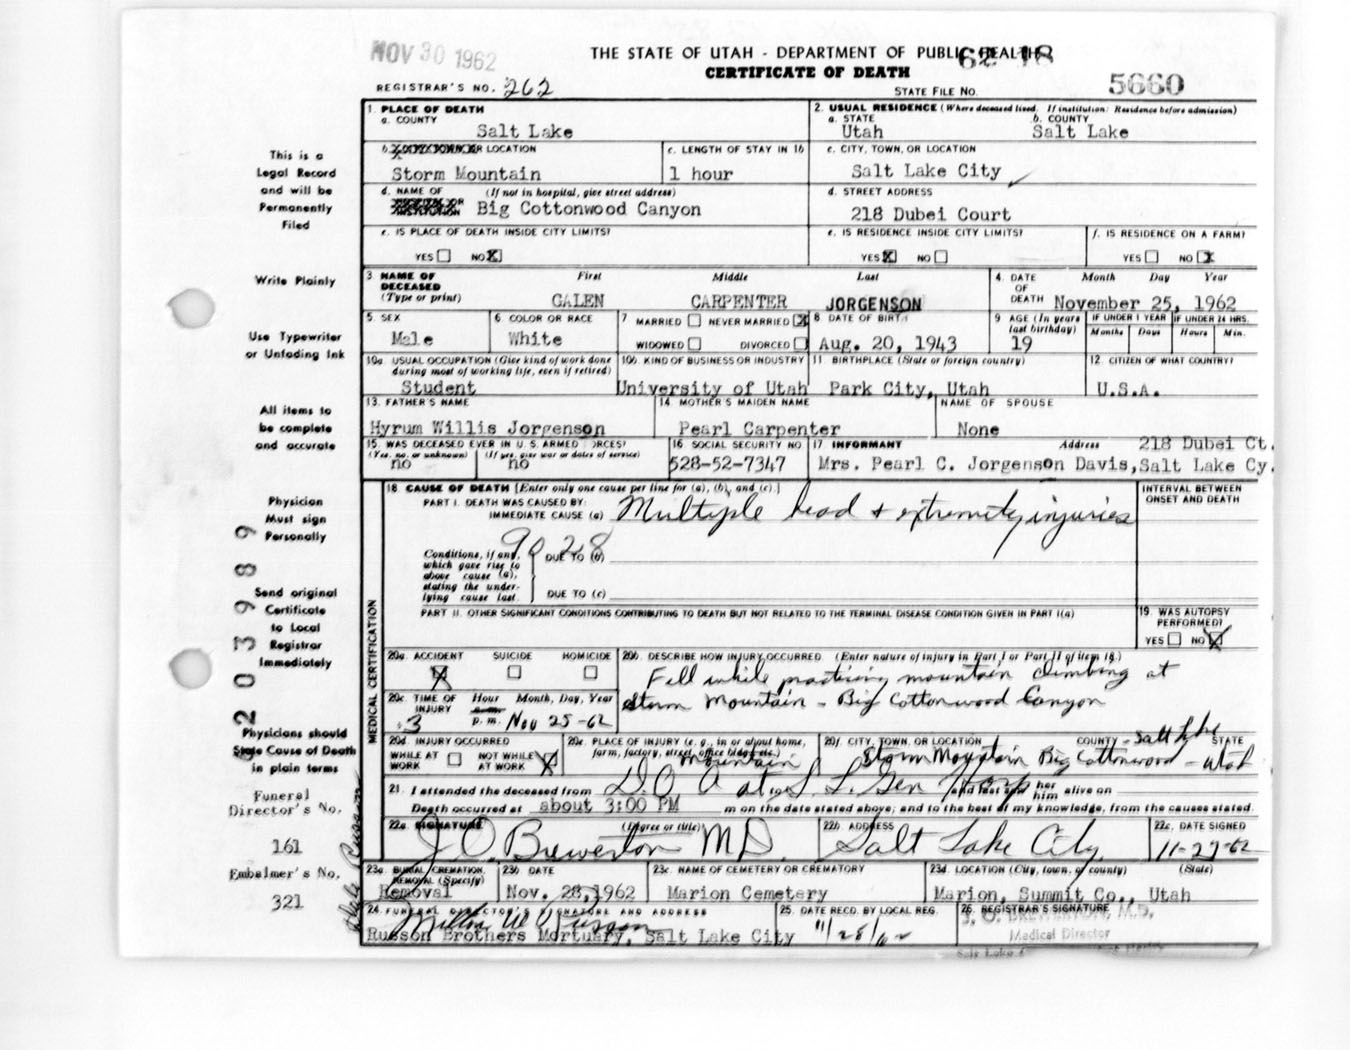 NOV 30 1962
THE STATE OF UTAH - DEPARTMENT OF PUBLIC HEALTH
62 18
CERTIFICATE OF DEATH
REGISTRAR'S NO. 262
STATE FILE NO. 5660
This is a
Legal Record
and will be
Permanently
Filed
Write Plainly
Use Typewriter
or Unfading Ink
All items to
be complete
and accurate
Physician
Must sign
Personally
Send original
Certificate
to Local
Registrar
Immediately
Physicians should
State Cause of Death
in plain terms
Funeral
Director's No.
161
Embalmer's No.
321
62 0 3989
1. PLACE OF DEATH
a. COUNTY
Salt Lake
2. USUAL RESIDENCE (Where deceased lived. If institution: Residence before admission)
a. STATE b. COUNTY
Utah Salt Lake
b. OR LOCATION
Storm Mountain
c. LENGTH OF STAY IN 1b
1 hour
c. CITY, TOWN, OR LOCATION
Salt Lake City
d. NAME OF (If not in hospital, give street address)
INSTITUTION Big Cottonwood Canyon
d. STREET ADDRESS
218 Dubei Court
e. IS PLACE OF DEATH INSIDE CITY LIMITS?
YES NO X
e. IS RESIDENCE INSIDE CITY LIMITS?
YES X NO
f. IS RESIDENCE ON A FARM?
YES NO X
3. NAME OF DECEASED (Type or print)
First Middle Last
GALEN CARPENTER JORGENSON
4. DATE OF DEATH Month Day Year
November 25, 1962
5. SEX
Male
6. COLOR OR RACE
White
7 MARRIED NEVER MARRIED X
WIDOWED DIVORCED
8. DATE OF BIRTH
Aug. 20, 1943
9 AGE (In years last birthday)
19
IF UNDER 1 YEAR IF UNDER 24 HRS.
Months Days Hours Min.
10a. USUAL OCCUPATION (Give kind of work done during most of working life, even if retired)
Student
10b. KIND OF BUSINESS OR INDUSTRY
University of Utah
11 BIRTHPLACE (State or foreign country)
Park City, Utah
12. CITIZEN OF WHAT COUNTRY?
U.S.A.
13. FATHER'S NAME
Hyrum Willis Jorgenson
14 MOTHER'S MAIDEN NAME
Pearl Carpenter
NAME OF SPOUSE
None
15. WAS DECEASED EVER IN U. S. ARMED FORCES?
(Yes, no, or unknown) (If yes, give war or dates of service)
no no
16 SOCIAL SECURITY NO
528-52-7347
17 INFORMANT Address 218 Dubei Ct.
Mrs. Pearl C. Jorgenson Davis, Salt Lake Cy.
MEDICAL CERTIFICATION
18. CAUSE OF DEATH [Enter only one cause per line for (a), (b), and (c).]
PART I. DEATH WAS CAUSED BY:
IMMEDIATE CAUSE (a) Multiple head & extremity injuries
INTERVAL BETWEEN ONSET AND DEATH
9028
Conditions, if any, which gave rise to above cause (a), stating the underlying cause last.
DUE TO (b)
DUE TO (c)
PART II. OTHER SIGNIFICANT CONDITIONS CONTRIBUTING TO DEATH BUT NOT RELATED TO THE TERMINAL DISEASE CONDITION GIVEN IN PART I(a)
19. WAS AUTOPSY PERFORMED?
YES NO X
20a. ACCIDENT SUICIDE HOMICIDE
X
20b. DESCRIBE HOW INJURY OCCURRED. (Enter nature of injury in Part I or Part II of item 18.)
Fell while practicing mountain climbing at
Storm Mountain - Big Cottonwood Canyon
20c. TIME OF INJURY Hour Month, Day, Year
3 a.m. p.m. Nov 25-62
20d. INJURY OCCURRED
WHILE AT WORK NOT WHILE AT WORK X
20e. PLACE OF INJURY (e. g., in or about home, farm, factory, street, office bldg., etc.)
Mountain
20f. CITY, TOWN, OR LOCATION COUNTY STATE
Storm Mountain Big Cottonwood - Salt Lake Utah
21. I attended the deceased from D.O.A at S. L. Gen Hosp and last saw her him alive on
Death occurred at about 3:00 PM m on the date stated above; and to the best of my knowledge, from the causes stated.
22a. SIGNATURE (Degree or title)
J. O. Brewerton MD.
22b. ADDRESS
Salt Lake City
22c. DATE SIGNED
11-27-62
23a. BURIAL, CREMATION, REMOVAL (Specify)
Removal
23b. DATE
Nov. 28, 1962
23c. NAME OF CEMETERY OR CREMATORY
Marion Cemetery
23d. LOCATION (City, town, or county) (State)
Marion, Summit Co., Utah
24. FUNERAL DIRECTOR'S SIGNATURE AND ADDRESS
Russon Brothers Mortuary, Salt Lake City
25. DATE RECD. BY LOCAL REG.
11/28/62
26. REGISTRAR'S SIGNATURE
J. O. BREWERTON, M.D.
Medical Director